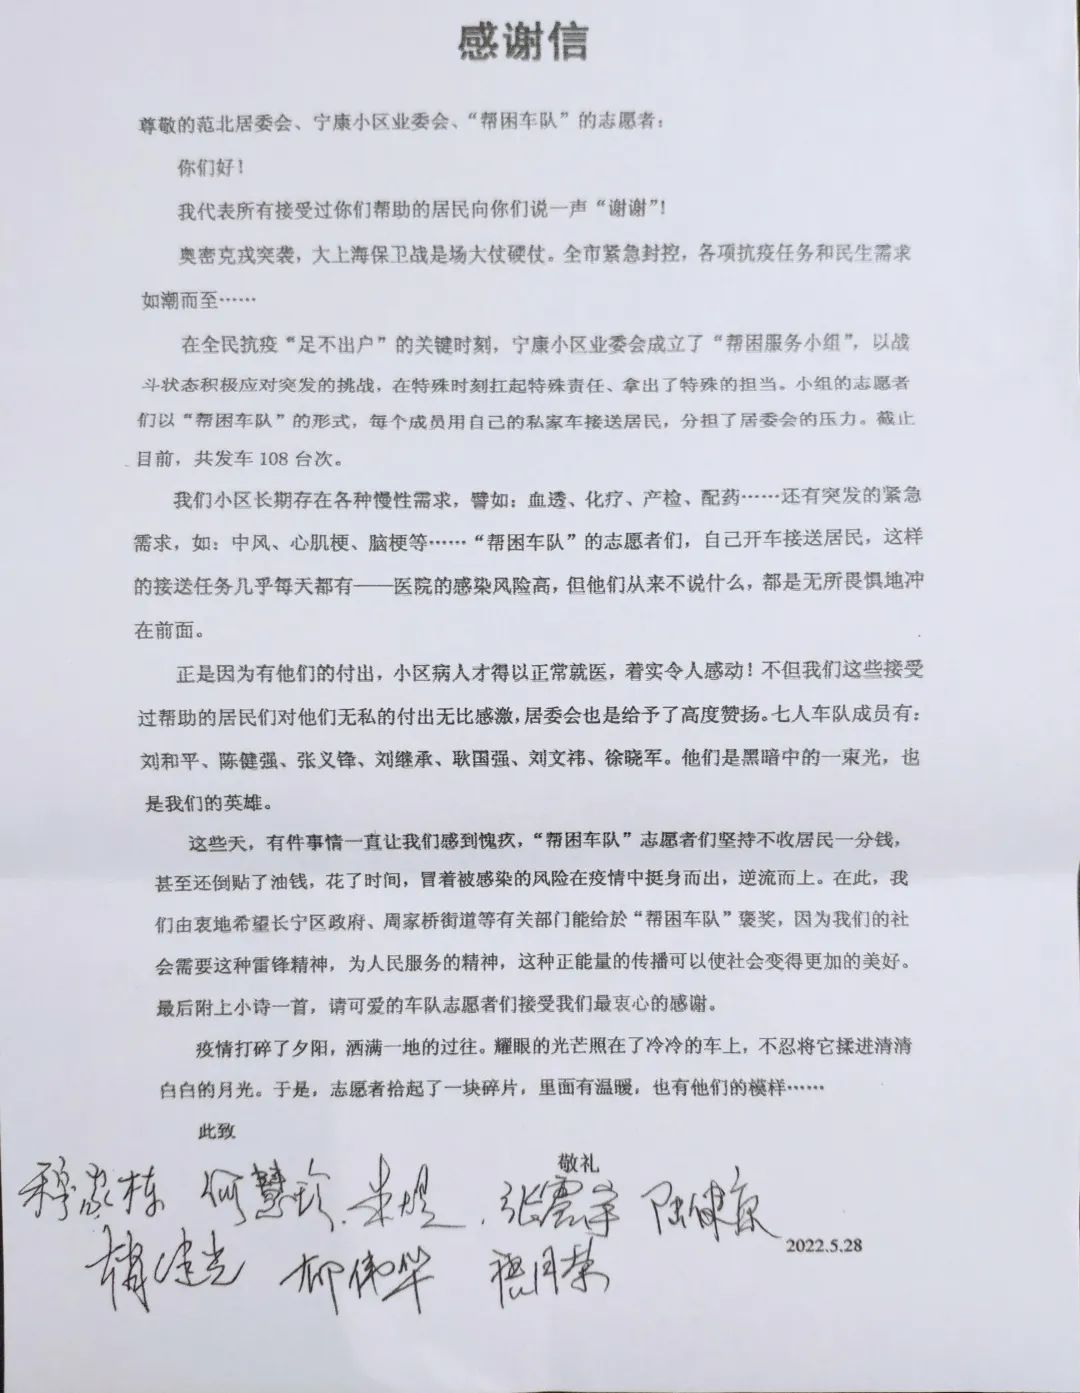 感谢信
尊敬的范北居委会、宁康小区业委会、“帮困车队”的志愿者：
你们好！
我代表所有接受过你们帮助的居民向你们说一声“谢谢”！
奥密克戎突袭，大上海保卫战是场大仗硬仗。全市紧急封控，各项抗疫任务和民生需求
如潮而至……
在全民抗疫“足不出户”的关键时刻，宁康小区业委会成立了“帮困服务小组”，以战
斗状态积极应对突发的挑战，在特殊时刻扛起特殊责任、拿出了特殊的担当。小组的志愿者
们以“帮困车队”的形式，每个成员用自己的私家车接送居民，分担了居委会的压力。截止
目前，共发车 108 台次。
我们小区长期存在各种慢性需求，譬如：血透、化疗、产检、配药……还有突发的紧急
需求，如：中风、心肌梗、脑梗等……“帮困车队”的志愿者们，自己开车接送居民，这样
的接送任务几乎每天都有——医院的感染风险高，但他们从来不说什么，都是无所畏惧地冲
在前面。
正是因为有他们的付出，小区病人才得以正常就医，着实令人感动！不但我们这些接受
过帮助的居民们对他们无私的付出无比感激，居委会也是给予了高度赞扬。七人车队成员有：
刘和平、陈健强、张义锋、刘继承、耿国强、刘文祎、徐晓军。他们是黑暗中的一束光，也
是我们的英雄。
这些天，有件事情一直让我们感到愧疚，“帮困车队”志愿者们坚持不收居民一分钱，
甚至还倒贴了油钱，花了时间，冒着被感染的风险在疫情中挺身而出，逆流而上。在此，我
们由衷地希望长宁区政府、周家桥街道等有关部门能给於“帮困车队”褒奖，因为我们的社
会需要这种雷锋精神，为人民服务的精神，这种正能量的传播可以使社会变得更加的美好。
最后附上小诗一首，请可爱的车队志愿者们接受我们最衷心的感谢。
疫情打碎了夕阳，洒满一地的过往。耀眼的光芒照在了冷冷的车上，不忍将它揉进清清
白白的月光。于是，志愿者拾起了一块碎片，里面有温暖，也有他们的模样……
此致
敬礼
穆家栋 何慧珍 朱煜 张震宇 陆健康
2022.5.28
郁伟华